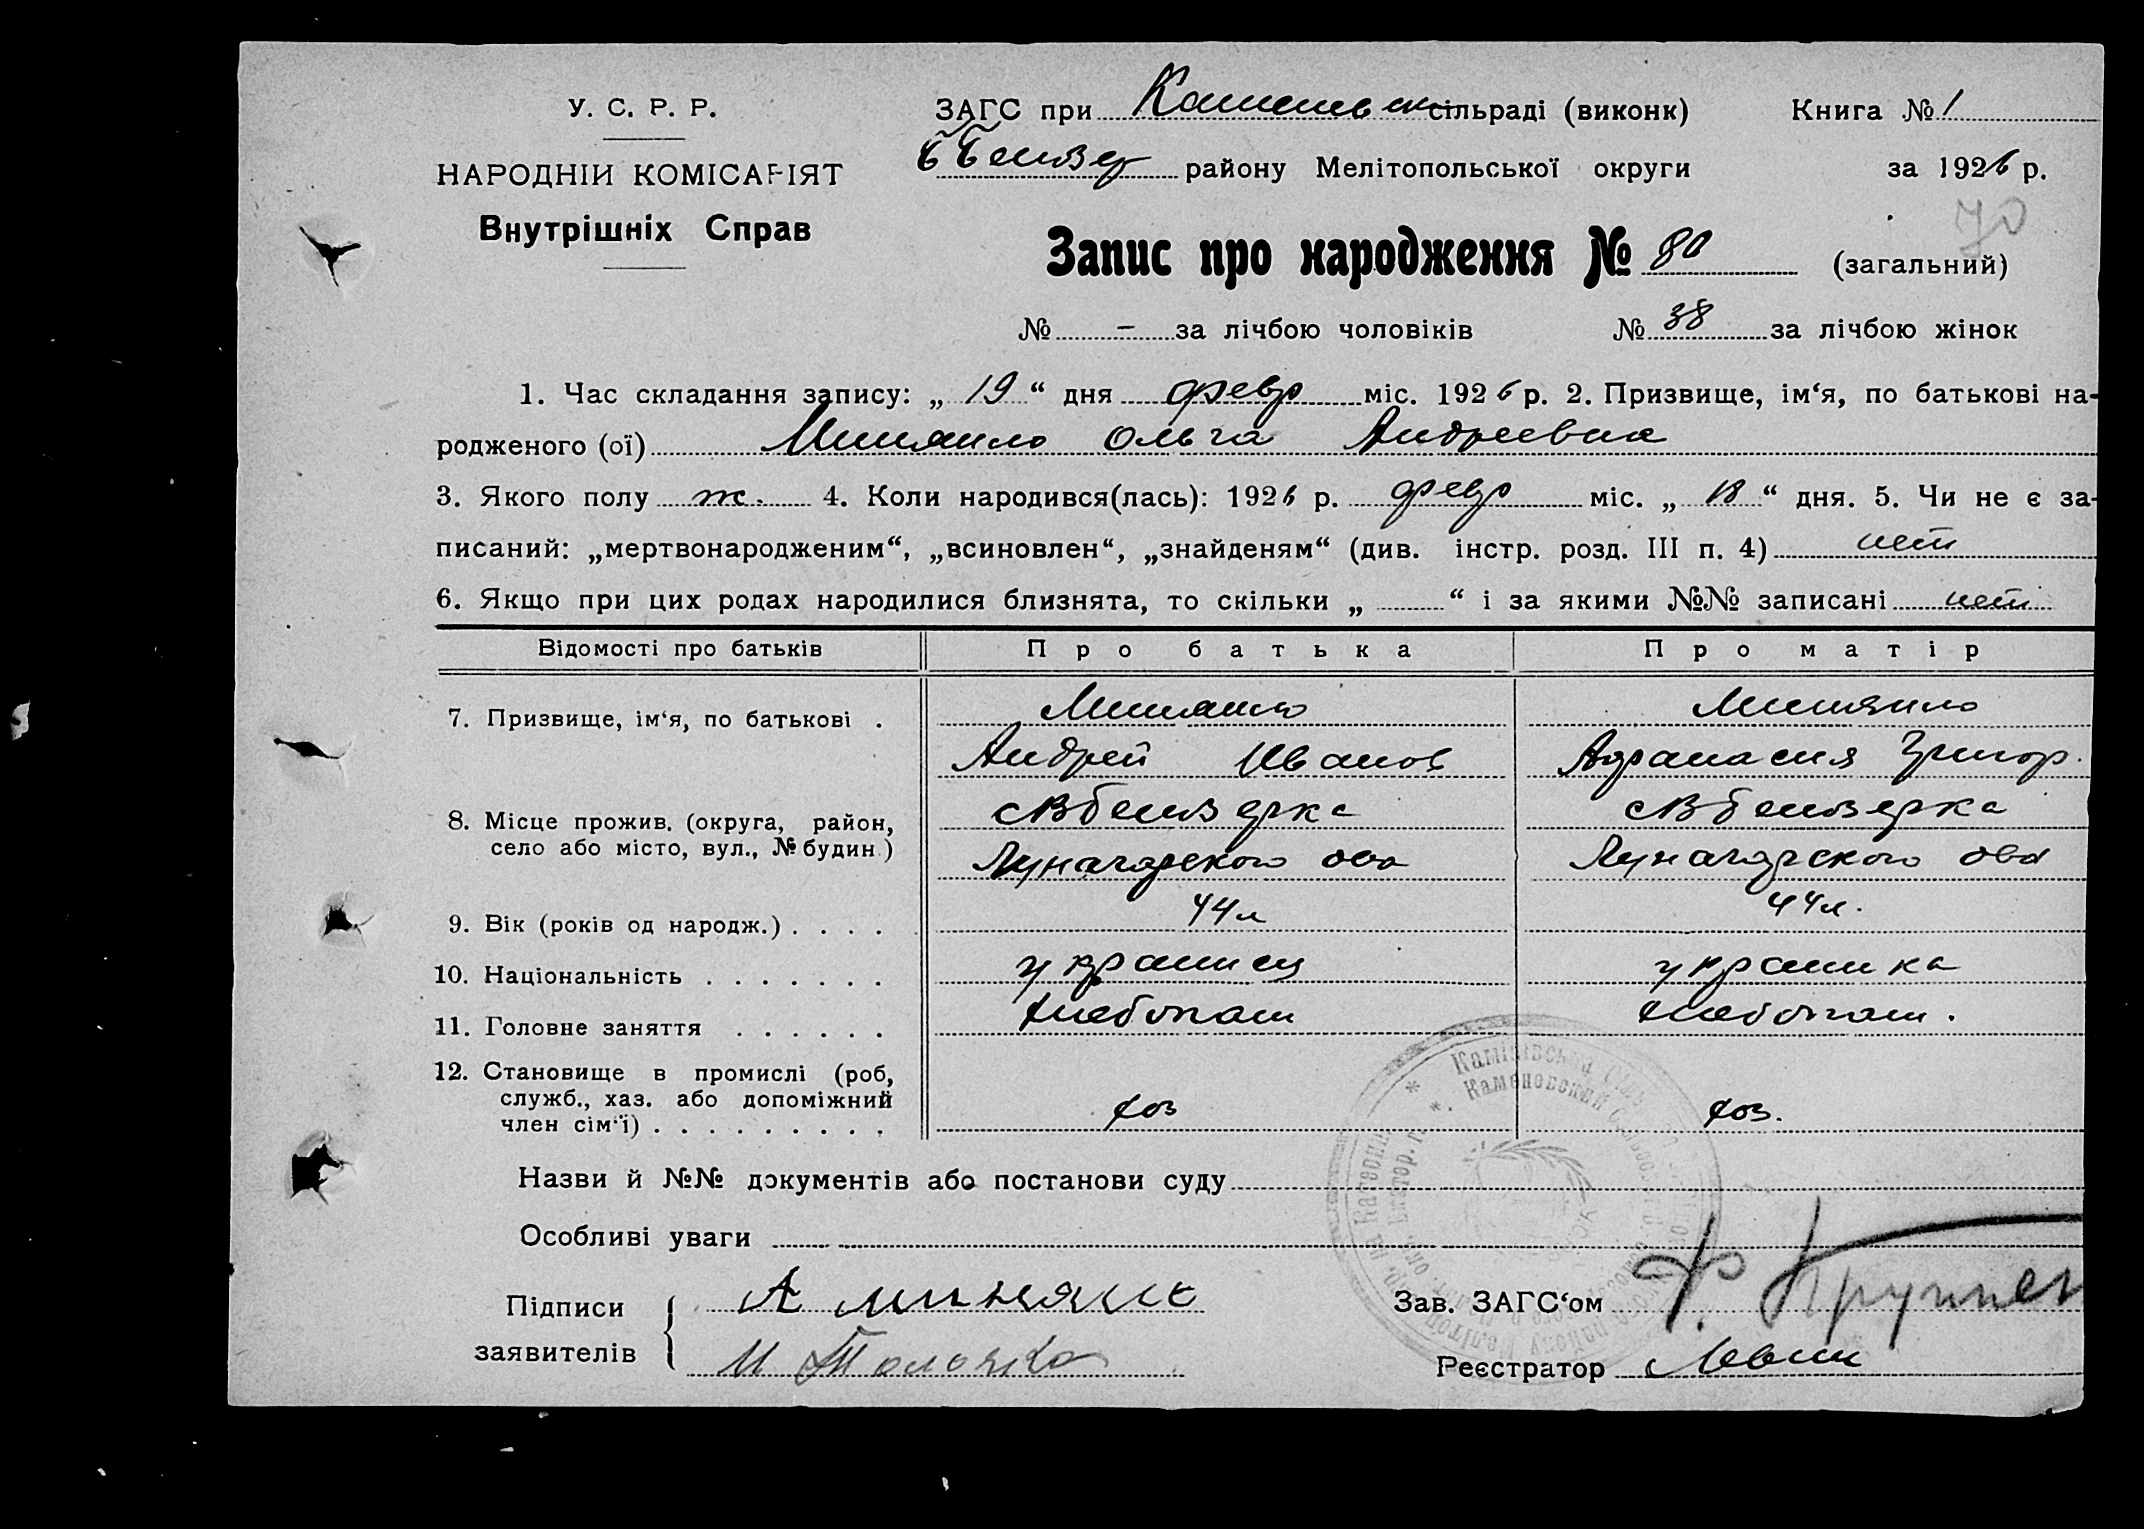 У. С. Р. Р.
НАРОДНІЙ КОМІСАРІЯТ
Внутрішніх Справ
ЗАГС при Каменев ск сільраді (виконк) Книга № 1
району Мелітопольської округи за 1926 р.
70
Запис про народження № 80 (загальний)
№ – за лічбою чоловіків № 38 за лічбою жінок
1. Час складання запису: „ 19 “ дня февр міс. 1926 р. 2. Призвище, ім‘я, по батькові на-
родженого (ої) Миняило Ольга Андреевна
3. Якого полу ж. 4. Коли народився(лась): 1926 р. февр міс. „ 18 “ дня. 5. Чи не є за-
писаний: „мертвонародженим“, „всиновлен“, „знайденям“ (див. інстр. розд. III п. 4) нет
6. Якщо при цих родах народилися близнята, то скільки „ “ і за якими №№ записані нет
Відомості про батьків Про батька Про матір
7. Призвище, ім‘я, по батькові . Миняило Миняило
Андрей Иванов Афанасия Григор.
8. Місце прожив. (округа, район,
село або місто, вул., № будин.)
Луначарского Луначарского
9. Вік (років од народж.) . . . . 44 л 44 л.
10. Національність . . . . . . . украинец украинка
11. Головне заняття . . . . . . хлебопаш хлебопаш.
12. Становище в промислі (роб,
служб., хаз. або допоміжний
член сім‘ї) . . . . . . . . . хоз хоз.
Назви й №№ документів або постанови суду
Особливі уваги
Підписи
заявителів
А Миняило
Зав. ЗАГС‘ом
Реєстратор Левин